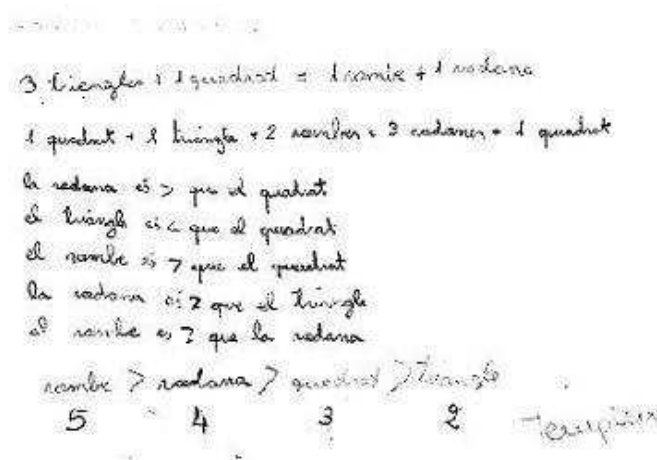 3 triangles + 1 quadrat = 1 rombe + 1 rodana
1 quadrat + 1 triangle + 2 rombes = 3 rodanes + 1 quadrat
la rodana és > que el quadrat
el triangle és < que el quadrat
el rombe és > que el quadrat
la rodana és > que el triangle
el rombe és > que la rodana
rombe > rodana > quadrat > triangle
5 4 3 2